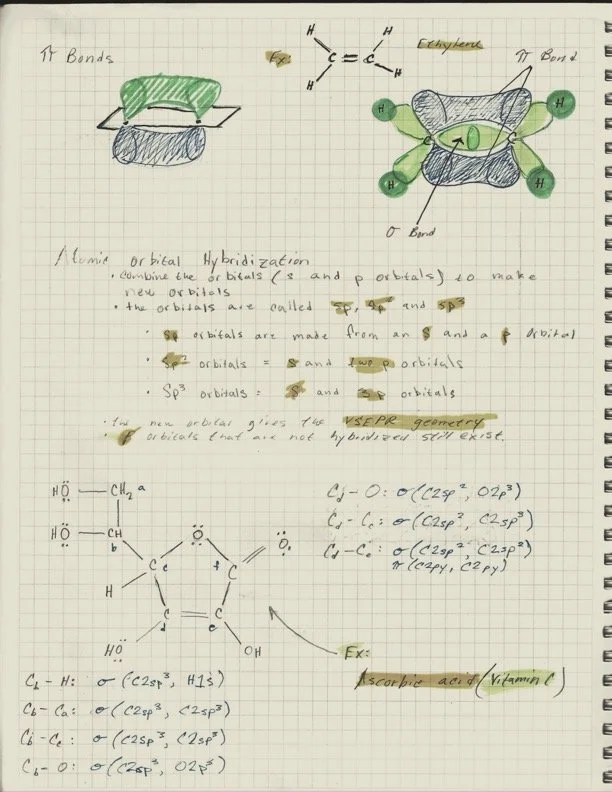 π Bonds
Ex:
H
H
C = C
H
H
Ethylene
π Bond
H
H
C
C
H
H
σ Bond
Atomic orbital Hybridization
• combine the orbitals (s and p orbitals) to make
new orbitals
• the orbitals are called sp, sp² and sp³
• sp orbitals are made from an s and a p orbital
• sp² orbitals = s and two p orbitals
• sp³ orbitals = s and 3p orbitals
• the new orbital gives the VSEPR geometry
• p orbitals that are not hybridized still exist.
HÖ — CH₂ a
HÖ — CH
b
O
O
C c
f C
H
C = C
d
e
HO
OH
Cd - O: σ(C2sp², O2p³)
Cd - Cc: σ(C2sp², C2sp³)
Cd - Ce: σ(C2sp², C2sp²)
π(C2py, C2py)
Ex:
Ascorbic acid (Vitamin C)
Cb - H: σ(C2sp³, H1s)
Cb - Ca: σ(C2sp³, C2sp³)
Cb - Cc: σ(C2sp³, C2sp³)
Cb - O: σ(C2sp³, O2p³)